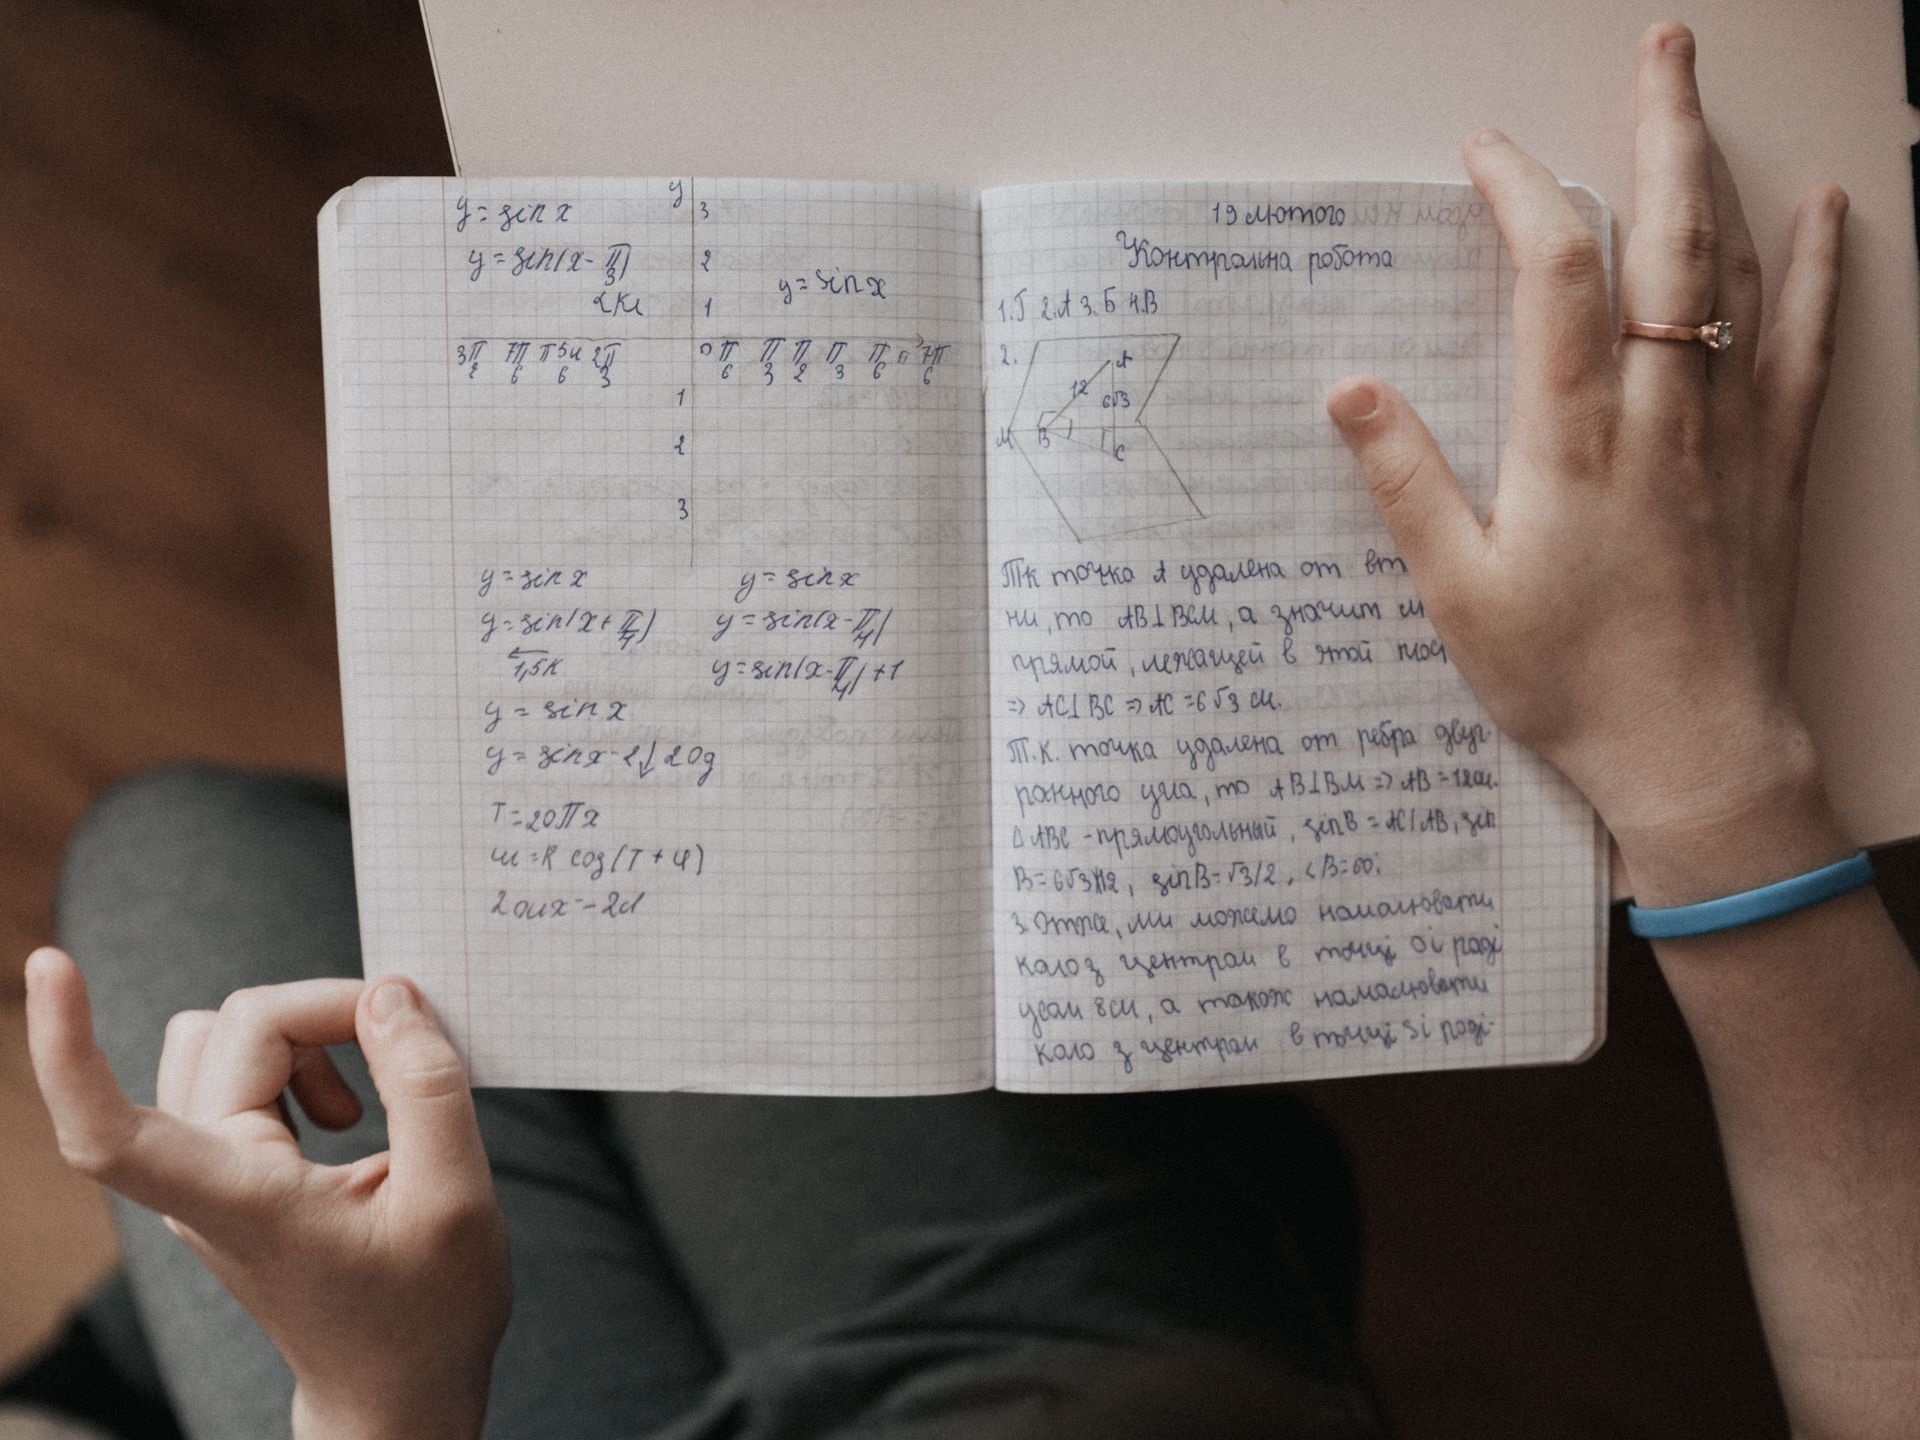 y = sin x
y = sin(x - π/3)
2кл
y
3
2
1
y = sin x
3π/2 7π/6 π 5π/6 2π/3
0 π/6 π/3 π/2 π/3 π/6 π 7π/6
1
2
3
y = sin x
y = sin(x + π/4)
1,5к
y = sin x
y = sin x - 2↓ 2од
y = sin x
y = sin(x - π/4)
y = sin(x - π/4) + 1
T = 20πx
= R cos(T + φ)
19 лютого
Контрольна робота
1.Г 2.А 3.Б 4.В
2.
A
12
6√3
M B
C
Тк точка A удалена от вт
ни, то AB⊥BCM, а значит
прямой, лежащей в этой плос
=> AC⊥BC => AC = 6√3 см.
Т.к. точка удалена от ребра двуг-
ранного угла, то AB⊥BM => AB = 12см.
△ABC - прямоугольный, sinB = AC/AB, sin
B = 6√3/12, sinB = √3/2, <B = 60;
3. Отже, ми можемо намалювати
коло з центром в точці O і раді
усом 8см, а також намалювати
коло з центром в точці S і раді-